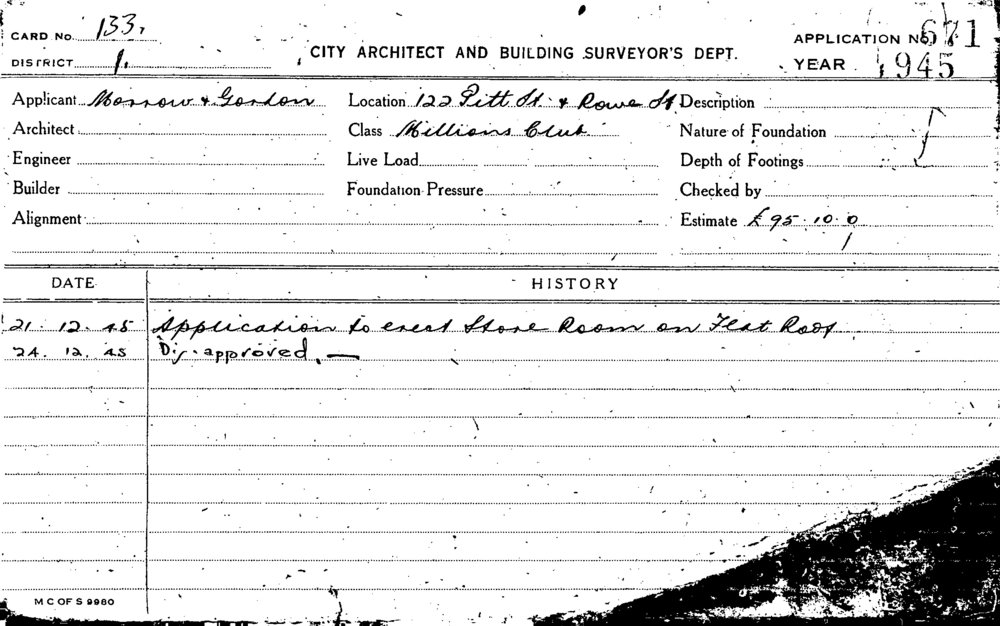 CARD No. 133. CITY ARCHITECT AND BUILDING SURVEYOR'S DEPT. APPLICATION No. 671
DISTRICT 1. YEAR 1945
Applicant Morrow & Gordon Location 122 Pitt St. & Rowe St Description
Architect Class Millions Club Nature of Foundation
Engineer Live Load Depth of Footings
Builder Foundation Pressure Checked by
Alignment Estimate £95.10.0
DATE HISTORY
21. 12. 45 Application to erect Store Room on Flat Roof
24. 12. 45 Dis-approved. —
M C OF S 9980